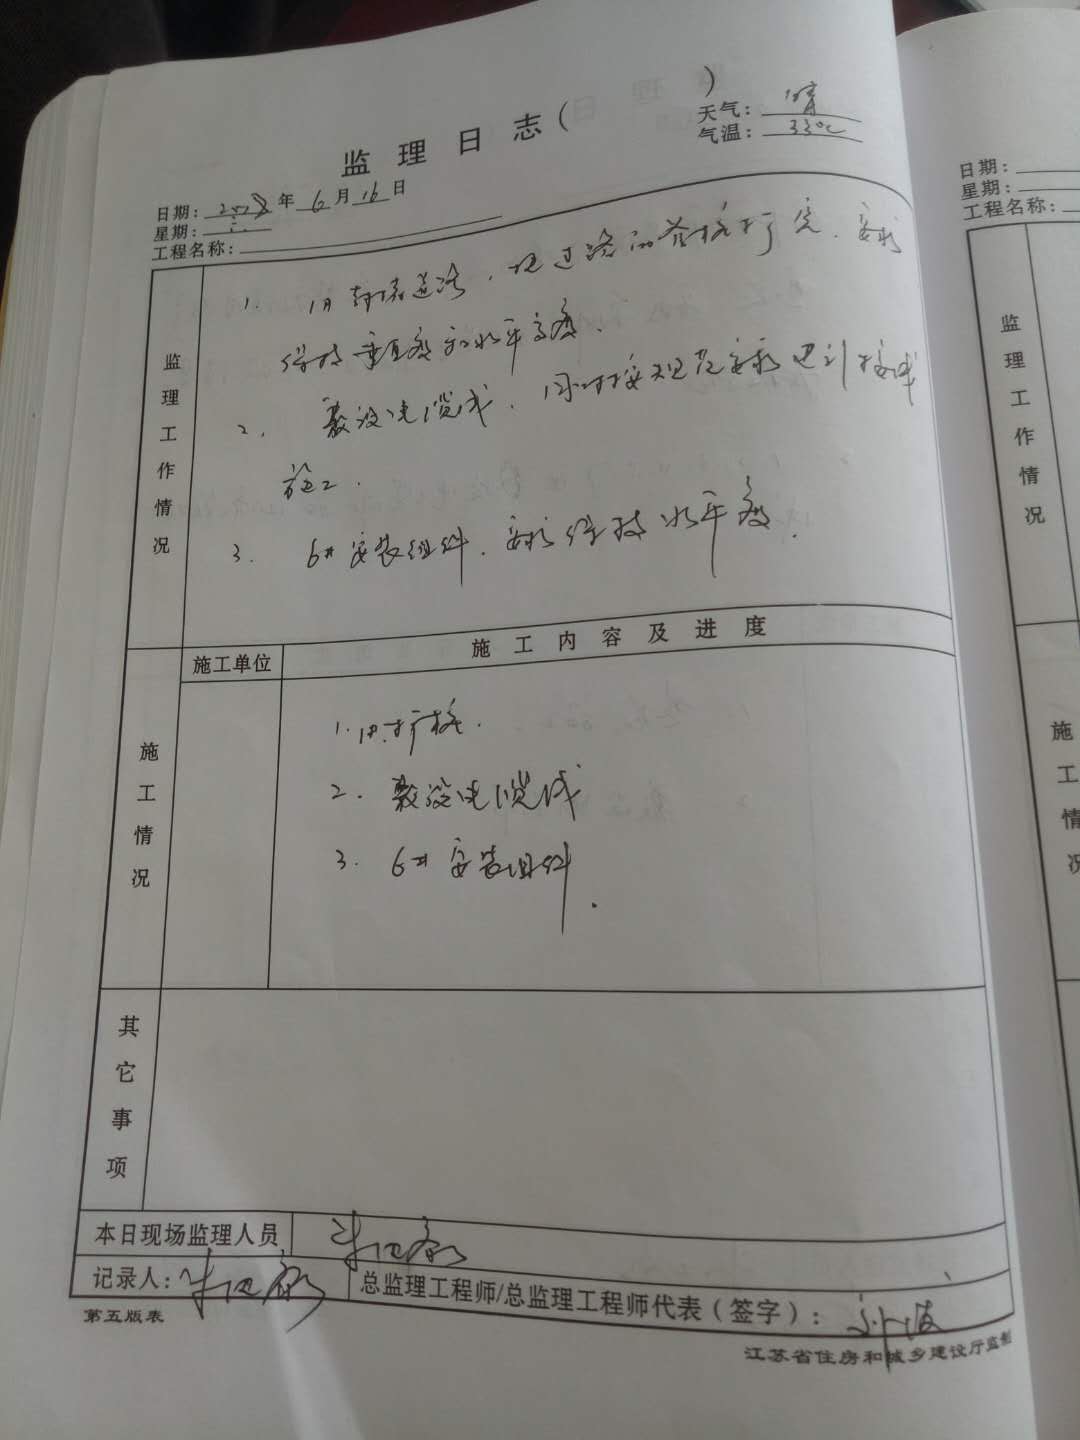 监理日志( )
天气: 晴
气温: 33℃
日期: 年 6 月 16 日
星期:
工程名称:
监理工作情况
1. 1# 道路, 过路的 桩打完, 要求
保持垂直度和水平高度.
2. 敷设电缆线, 同时按规范要求进行接线
施工.
3. 6# 安装组件, 要求保持水平度.
施工情况
施工单位
施工内容及进度
1. 桩.
2. 敷设电缆线
3. 6# 安装组件.
其它事项
本日现场监理人员
记录人:
总监理工程师/总监理工程师代表(签字):
第五版表
江苏省住房和城乡建设厅监制
日期:
星期:
工程名称:
监理工作情况
施工情况